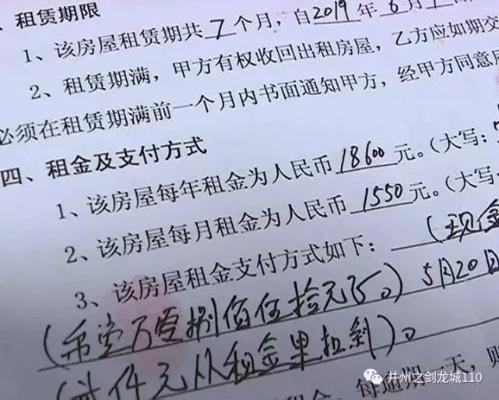 、租赁期限
1、该房屋租赁期共7个月，自2019年6月1
2、租赁期满，甲方有权收回出租房屋，乙方应如期交
必须在租赁期满前一个月内书面通知甲方，经甲方同意
四、租金及支付方式
1、该房屋每年租金为人民币18600元。（大写：
2、该房屋每月租金为人民币1550元。（大写：
3、该房屋租金支付方式如下：（现金
（币壹万零捌佰伍拾元 ）5月20日
仟元从租金里扣到）。
租金，每逾期一天，则
井州之剑龙城110